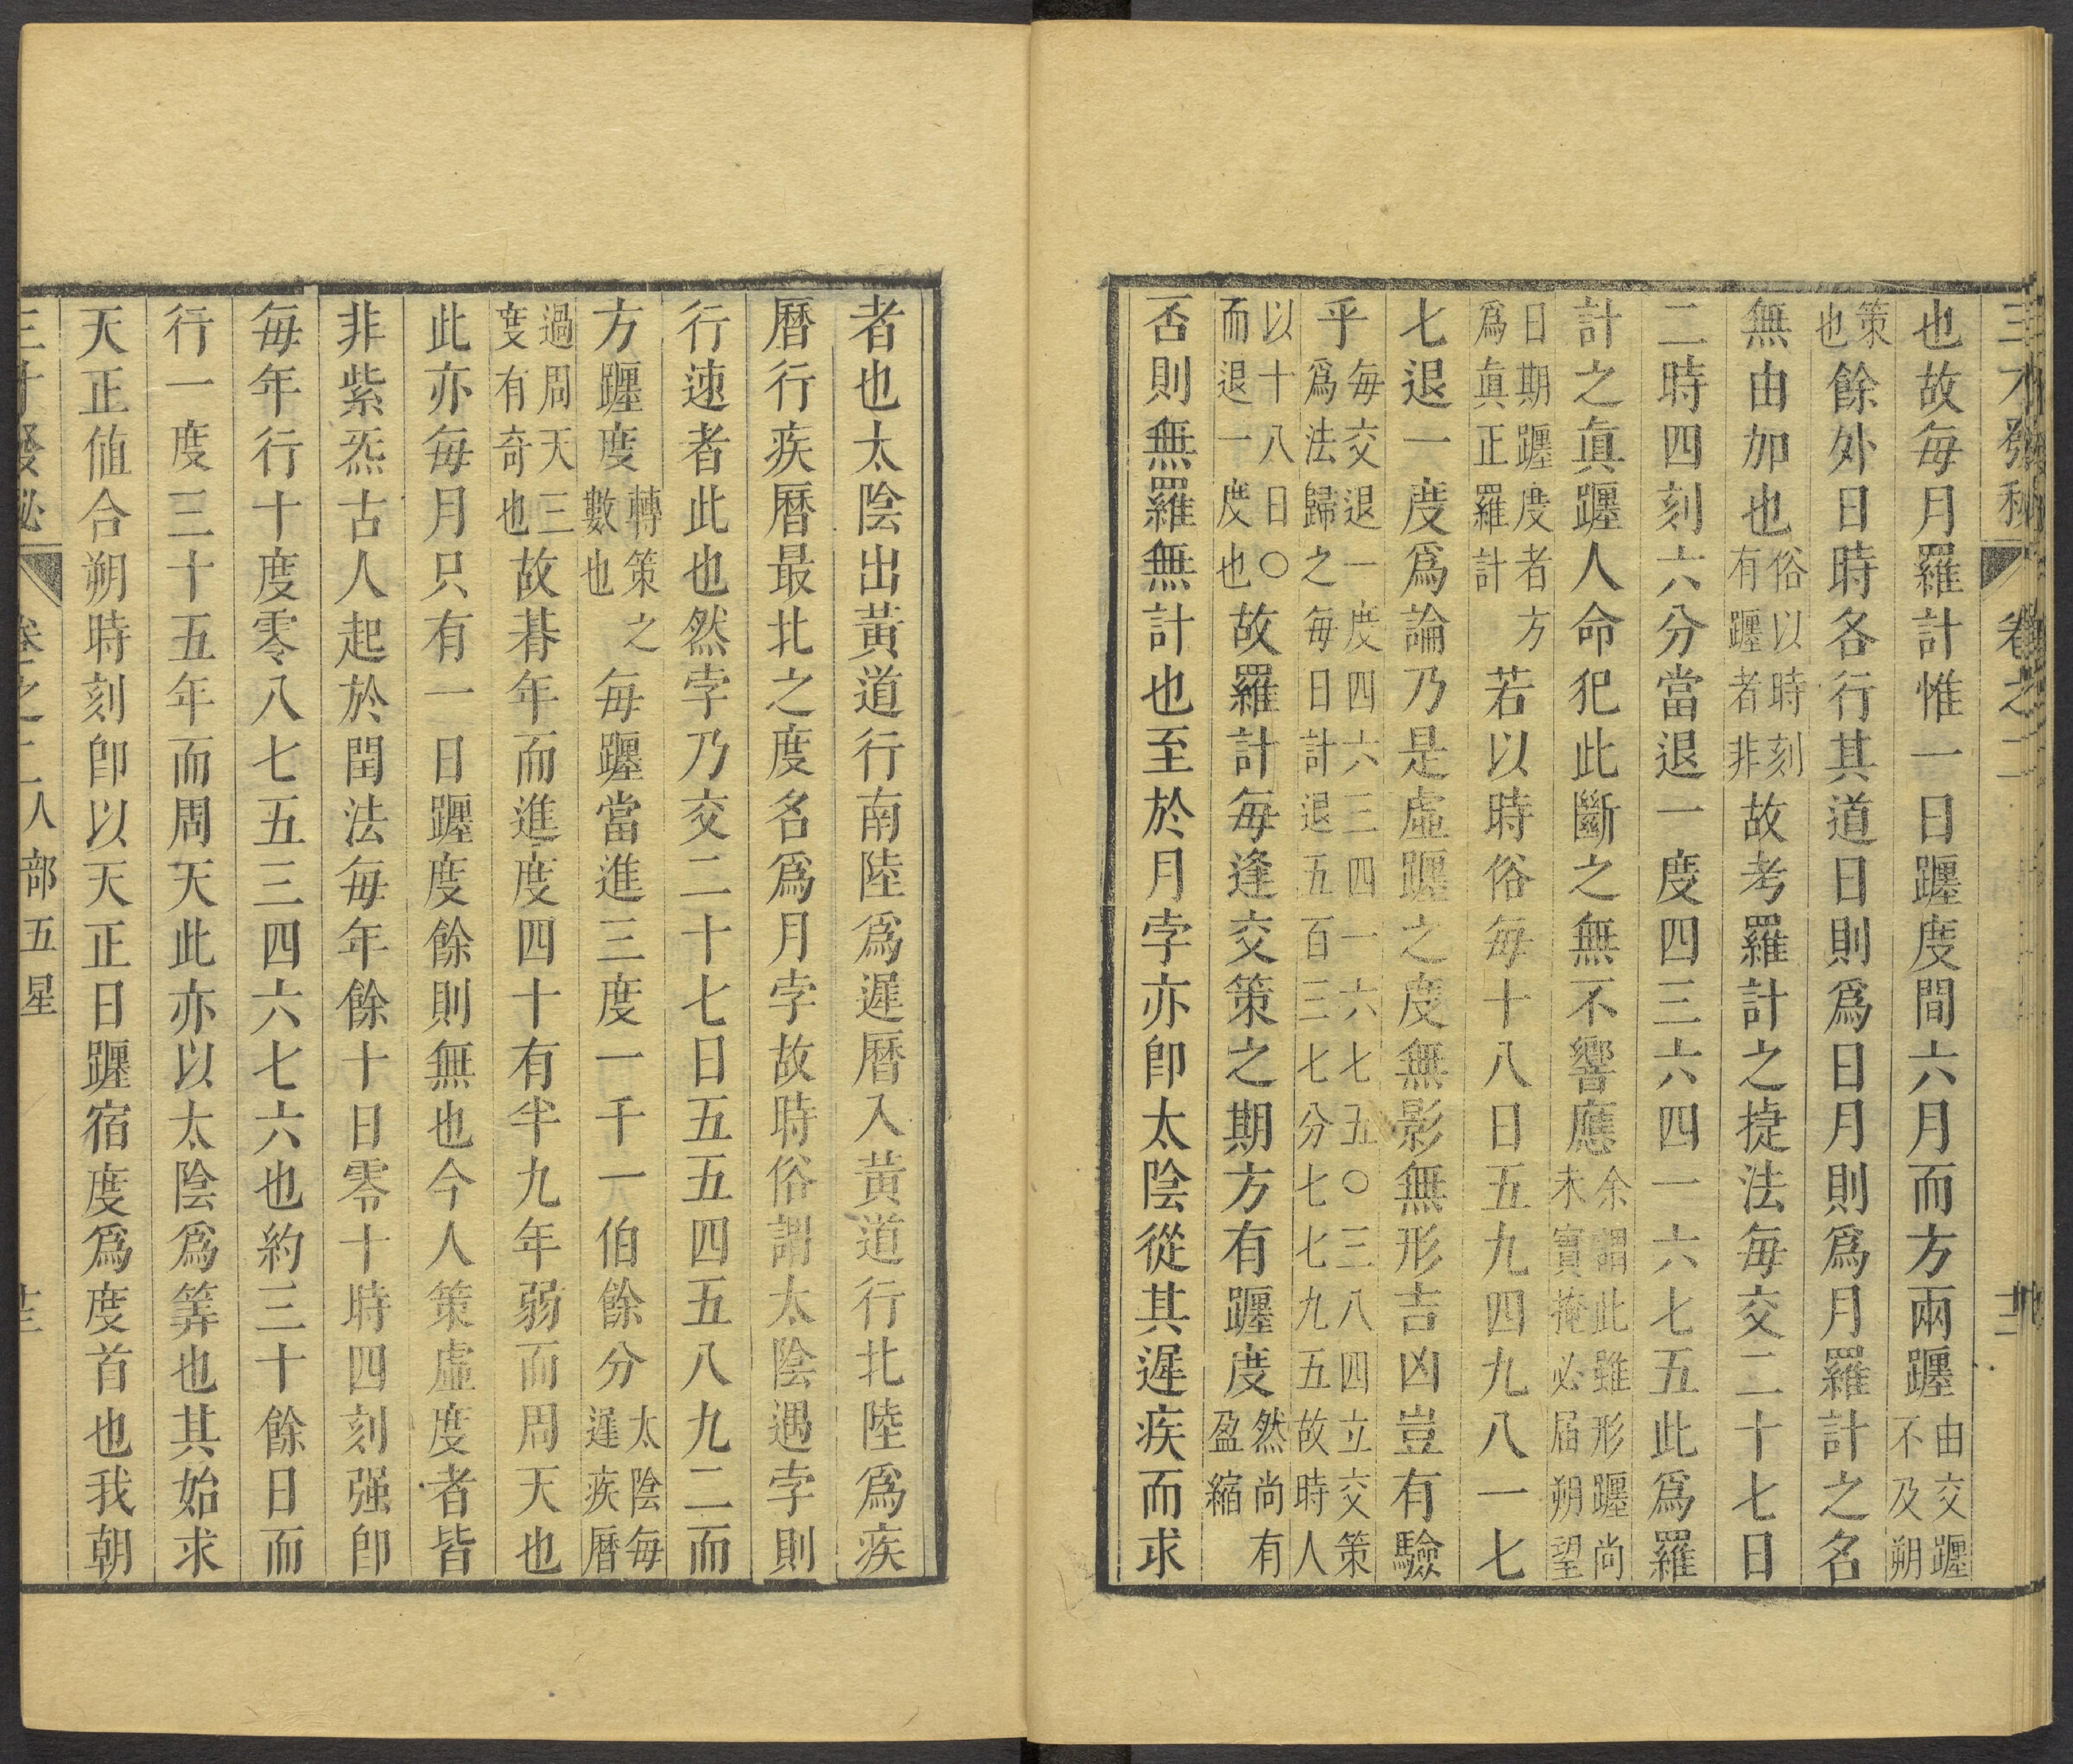 三才發秘 卷之二
也故每月羅計惟一日躔度間六月而方兩躔由交躔不及朔
策也餘外日時各行其道日則爲日月則爲月羅計之名
無由加也俗以時刻有躔者非故考羅計之㨗法每交二十七日
二時四刻六分當退一度四三六四一六七五此爲羅
計之眞躔人命犯此斷之無不響應余謂此雖形躔尚未實掩必届朔望
日期躔度者方爲眞正羅計若以時俗每十八日五九四九八一七
七退一度爲論乃是虛躔之度無影無形吉凶豈有驗
乎每交退一度四六三四一六七五〇三八四立交策爲法歸之每日計退五百三七分七七九五故時人
以十八日〇而退一度也故羅計每逢交策之期方有躔度然尚有盈縮
否則無羅無計也至於月孛亦卽太陰從其遲疾而求
者也太陰出黃道行南陸爲遲曆入黃道行北陸爲疾
曆行疾曆最北之度名爲月孛故時俗謂太陰遇孛則
行速者此也然孛乃交二十七日五五四五八九二而
方躔度轉策之數也每躔當進三度一千一伯餘分太陰每遲疾曆
過周天三度有奇也故朞年而進度四十有半九年弱而周天也
此亦每月只有一日躔度餘則無也今人策虛度者皆
非紫炁古人起於閏法每年餘十日零十時四刻强卽
每年行十度零八七五三四六七六也約三十餘日而
行一度三十五年而周天此亦以太陰爲筭也其始求
天正値合朔時刻卽以天正日躔宿度爲度首也我朝
三才發秘 卷之二人部五星